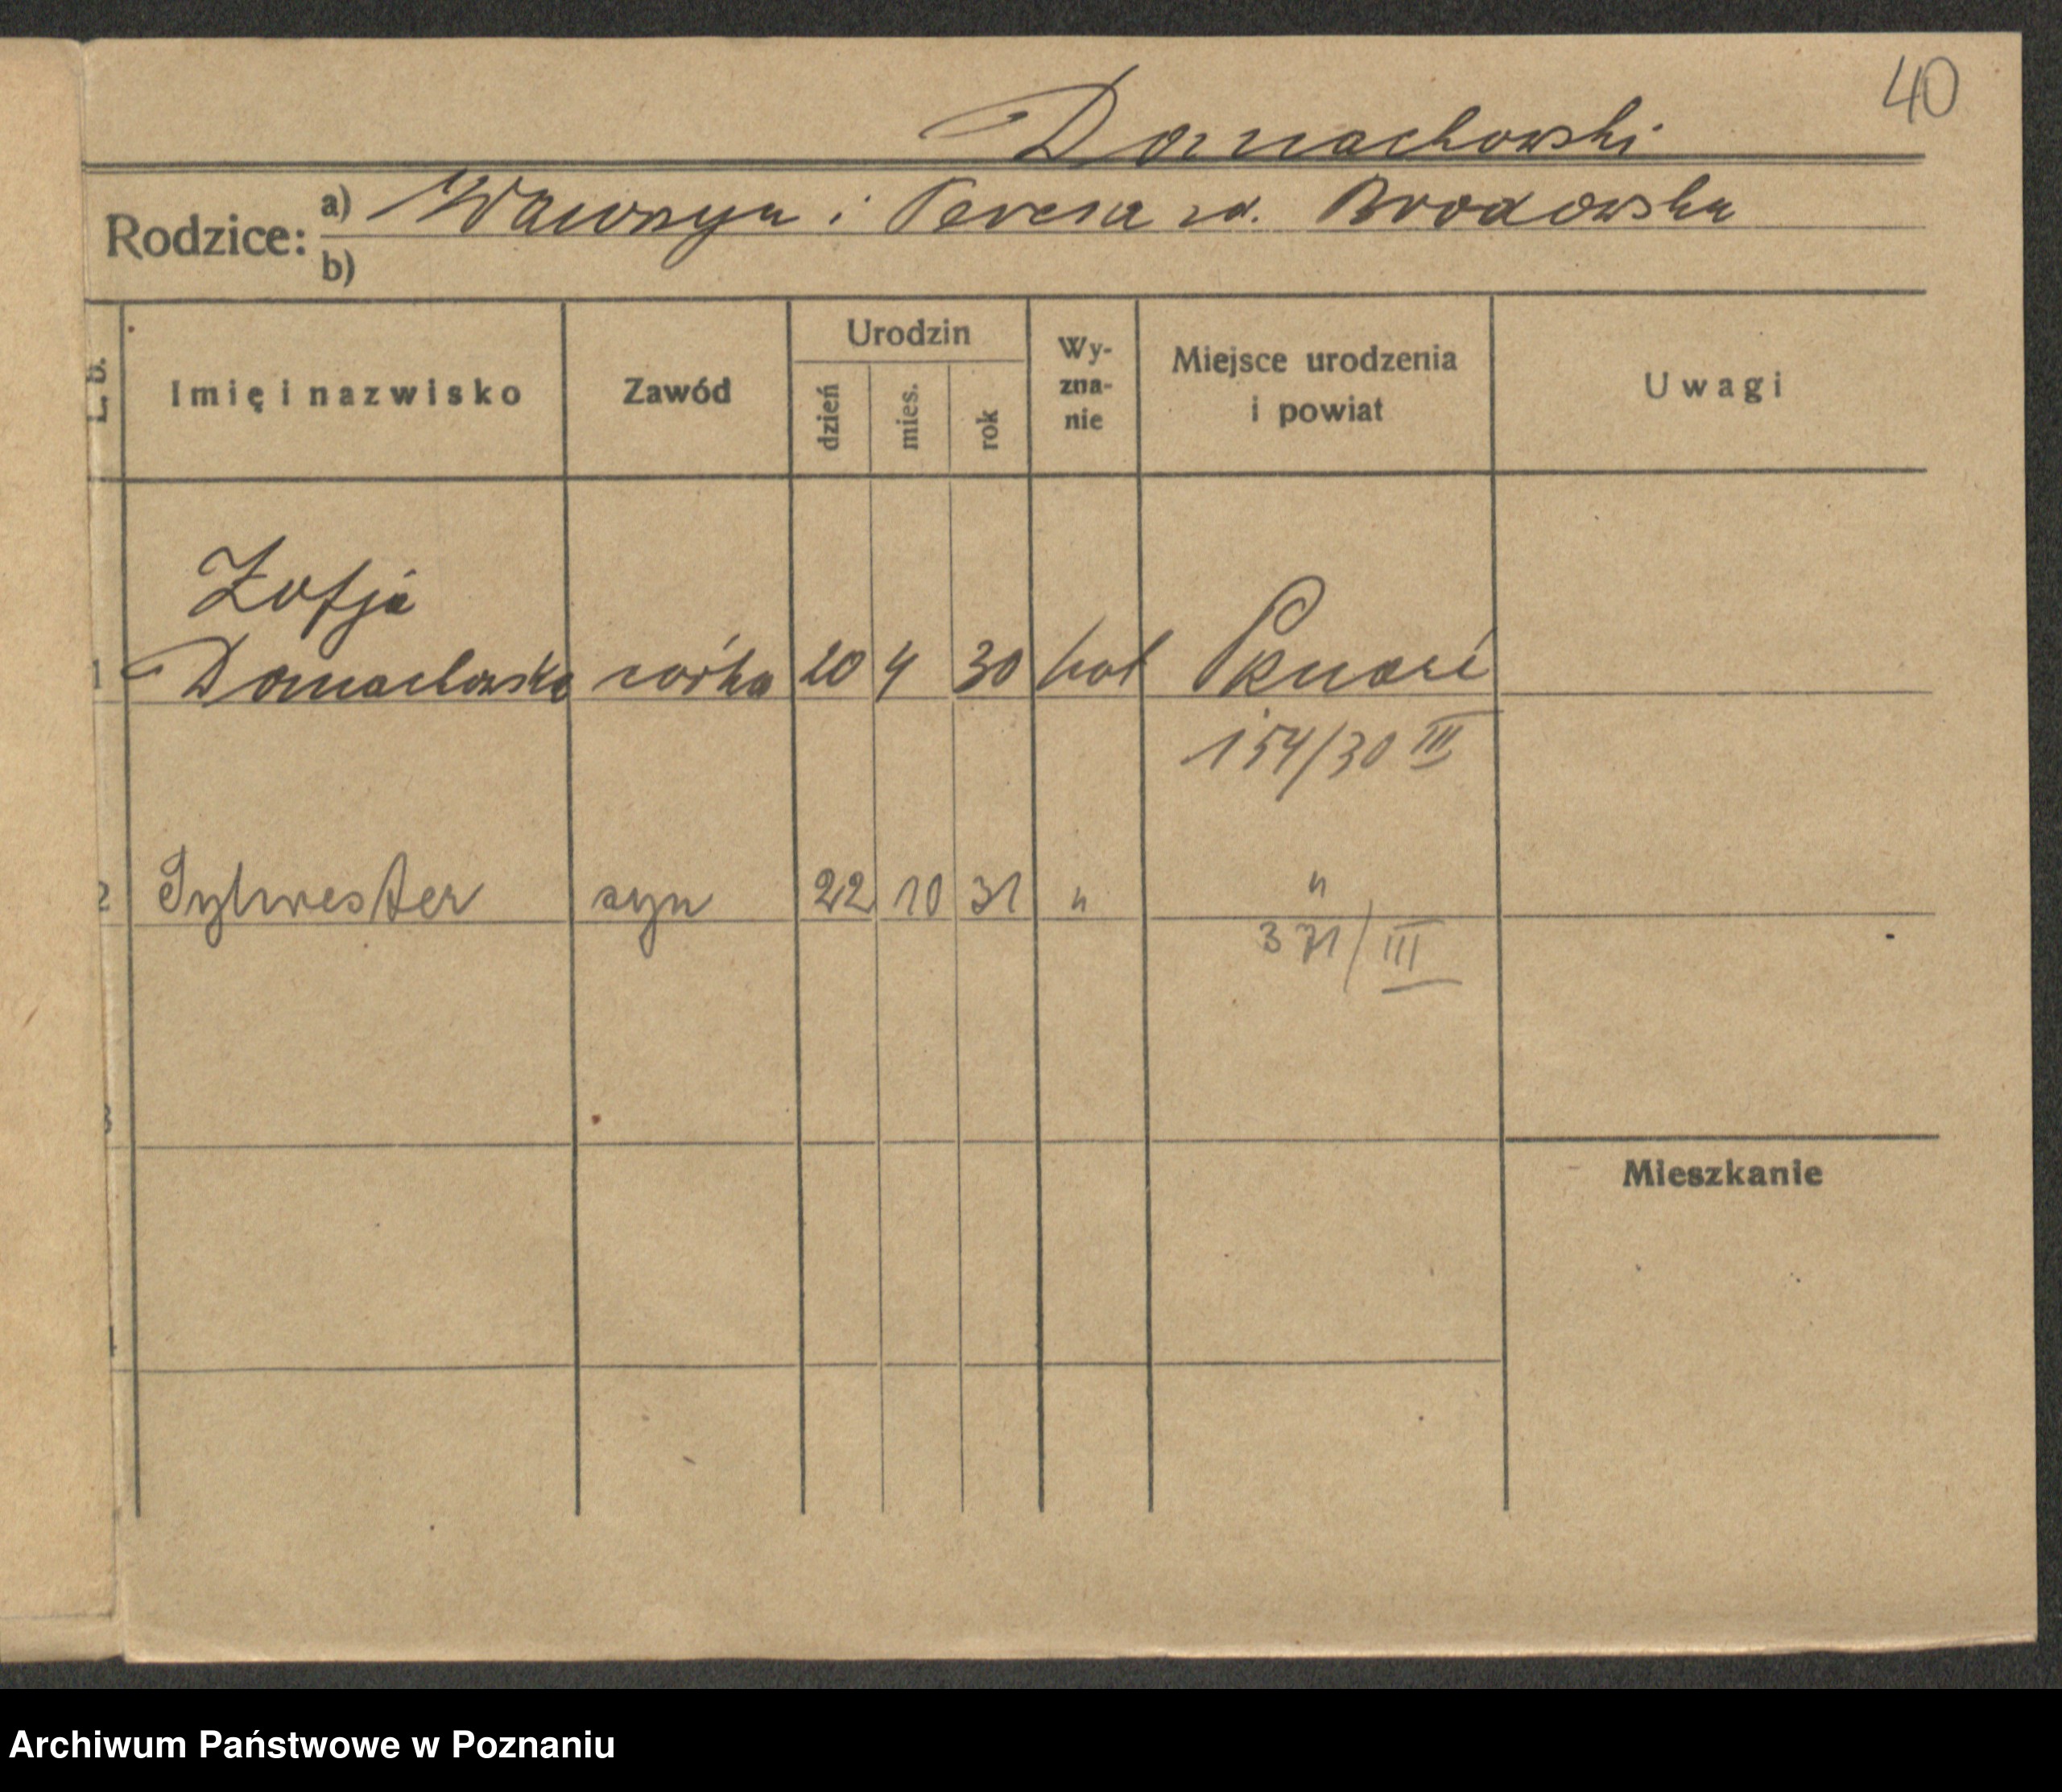 40
Domachowski
Rodzice: a) Wawrzyn i Teresa zd. Brodowska
b)
L. b.
Imię i nazwisko
Zawód
Urodzin
dzień
mies.
rok
Wy-
zna-
nie
Miejsce urodzenia
i powiat
Uwagi
Zofja
1 Domachowska córka 20 4 30 kat Poznań
154/30 III
2 Sylwester syn 22 10 31 " "
371/III
3
Mieszkanie
4
Archiwum Państwowe w Poznaniu